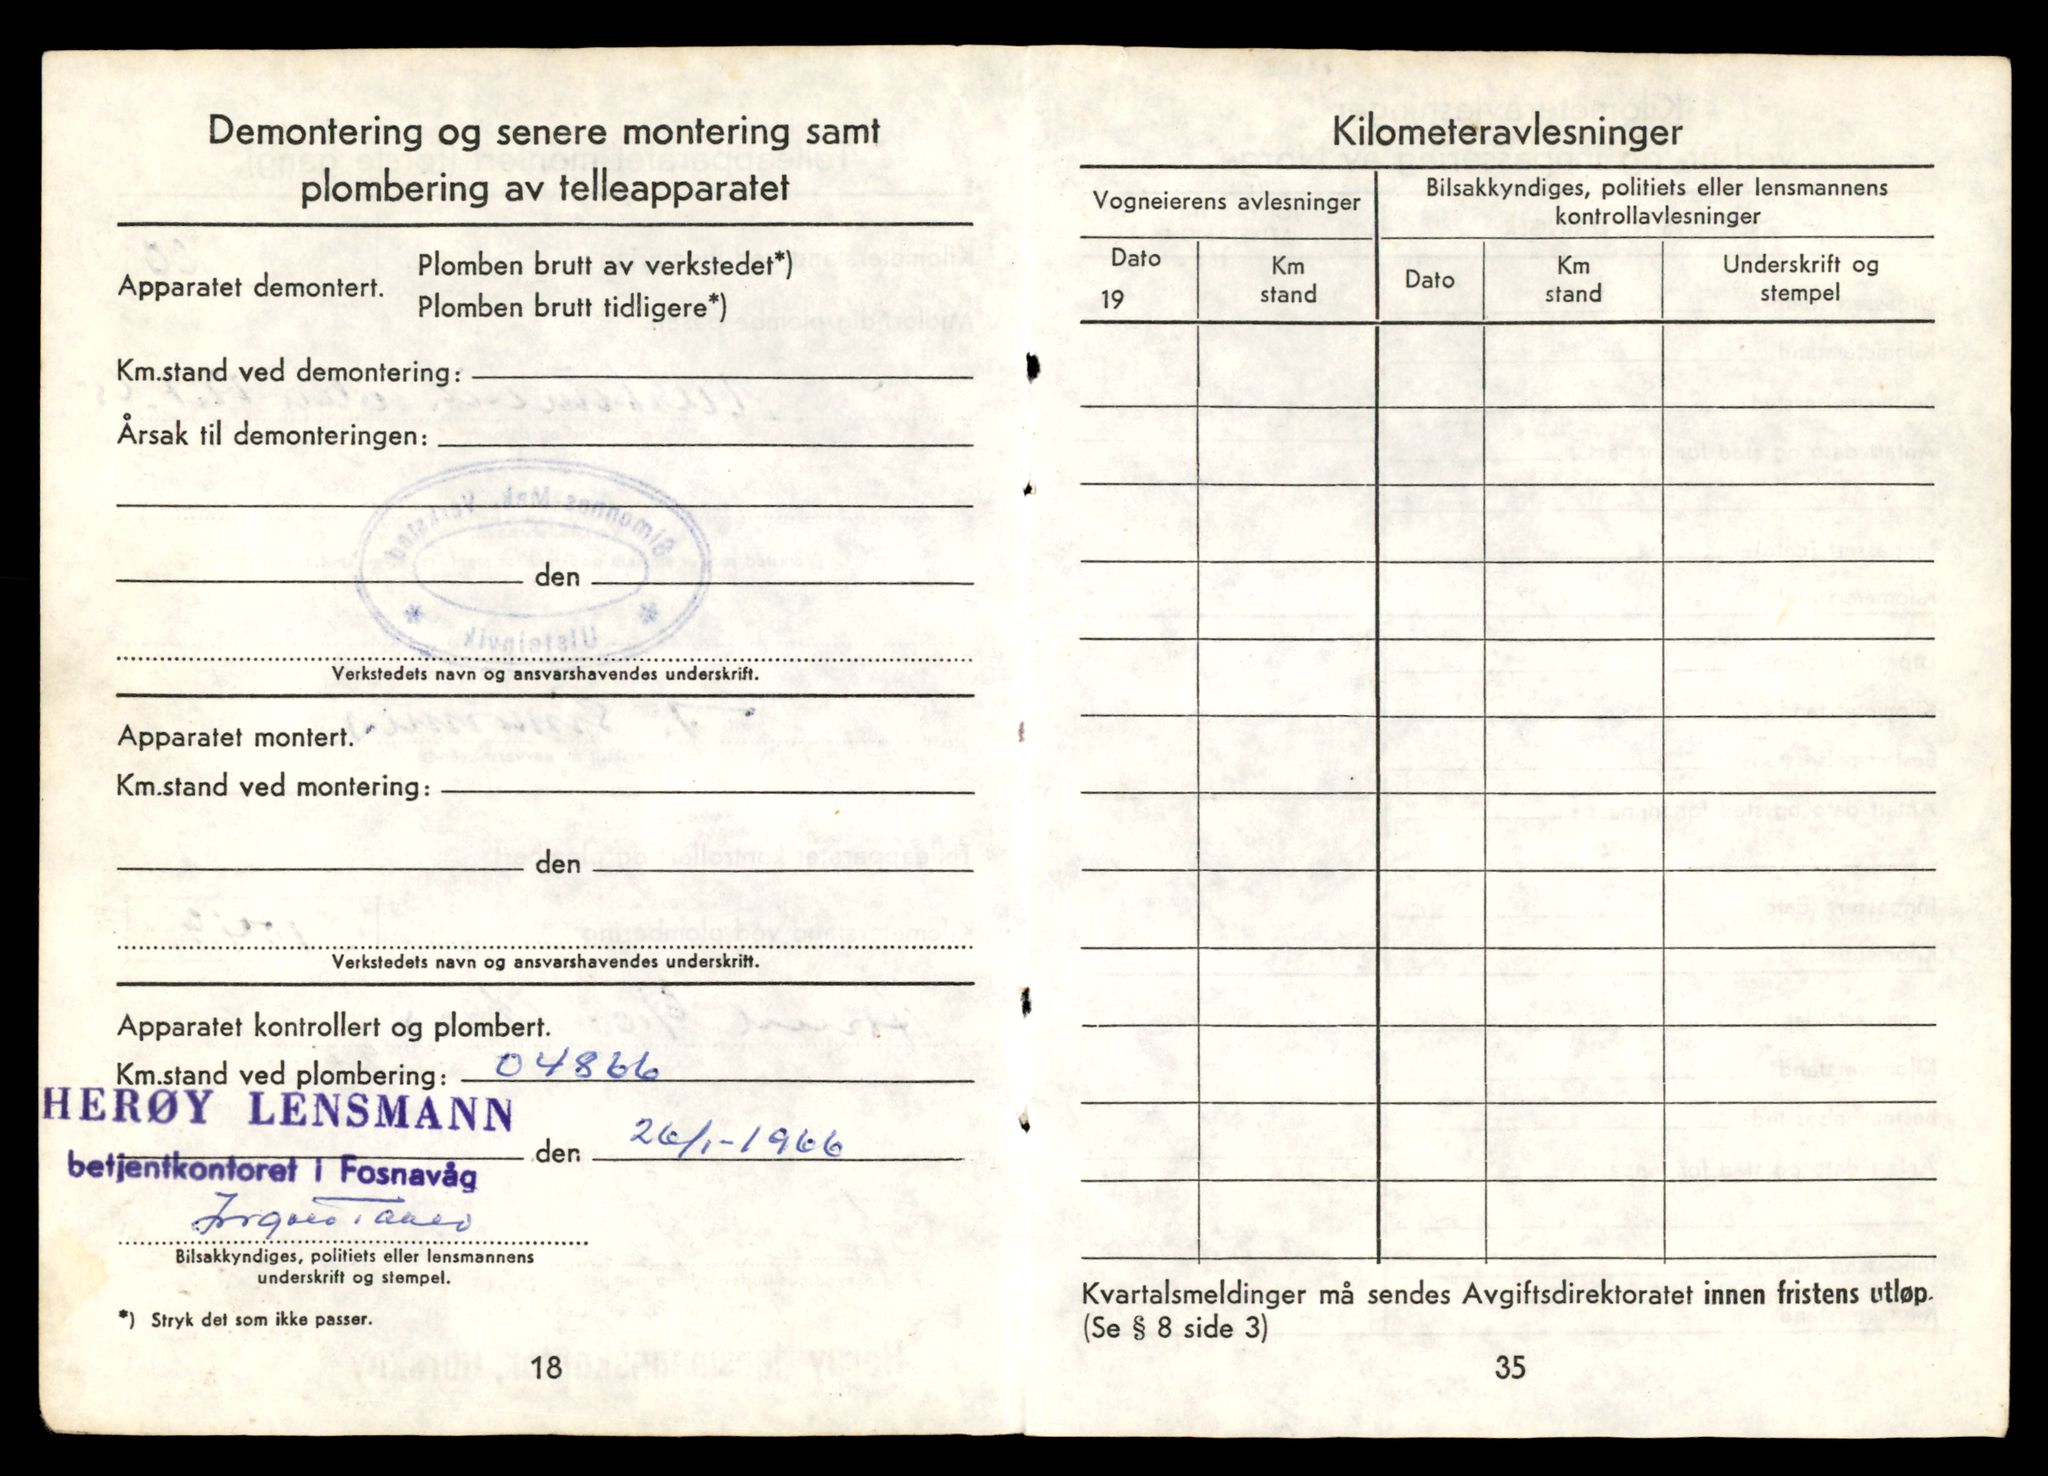 Demontering og senere montering samt
plombering av telleapparatet
Apparatet demontert.
Plomben brutt av verkstedet*)
Plomben brutt tidligere*)
Km.stand ved demontering:
Årsak til demonteringen:
Simonnes Mek. Verksted
Ulsteinvik
den
Verkstedets navn og ansvarshavendes underskrift.
Apparatet montert.
Km.stand ved montering:
den
Verkstedets navn og ansvarshavendes underskrift.
Apparatet kontrollert og plombert.
Km.stand ved plombering: 04866
HERØY LENSMANN
den 26/1-1966
betjentkontoret i Fosnavåg
Bilsakkyndiges, politiets eller lensmannens
underskrift og stempel.
*) Stryk det som ikke passer.
18
Kilometeravlesninger
Vogneierens avlesninger
Bilsakkyndiges, politiets eller lensmannens
kontrollavlesninger
Dato
19
Km
stand
Dato
Km
stand
Underskrift og
stempel
Kvartalsmeldinger må sendes Avgiftsdirektoratet innen fristens utløp.
(Se § 8 side 3)
35